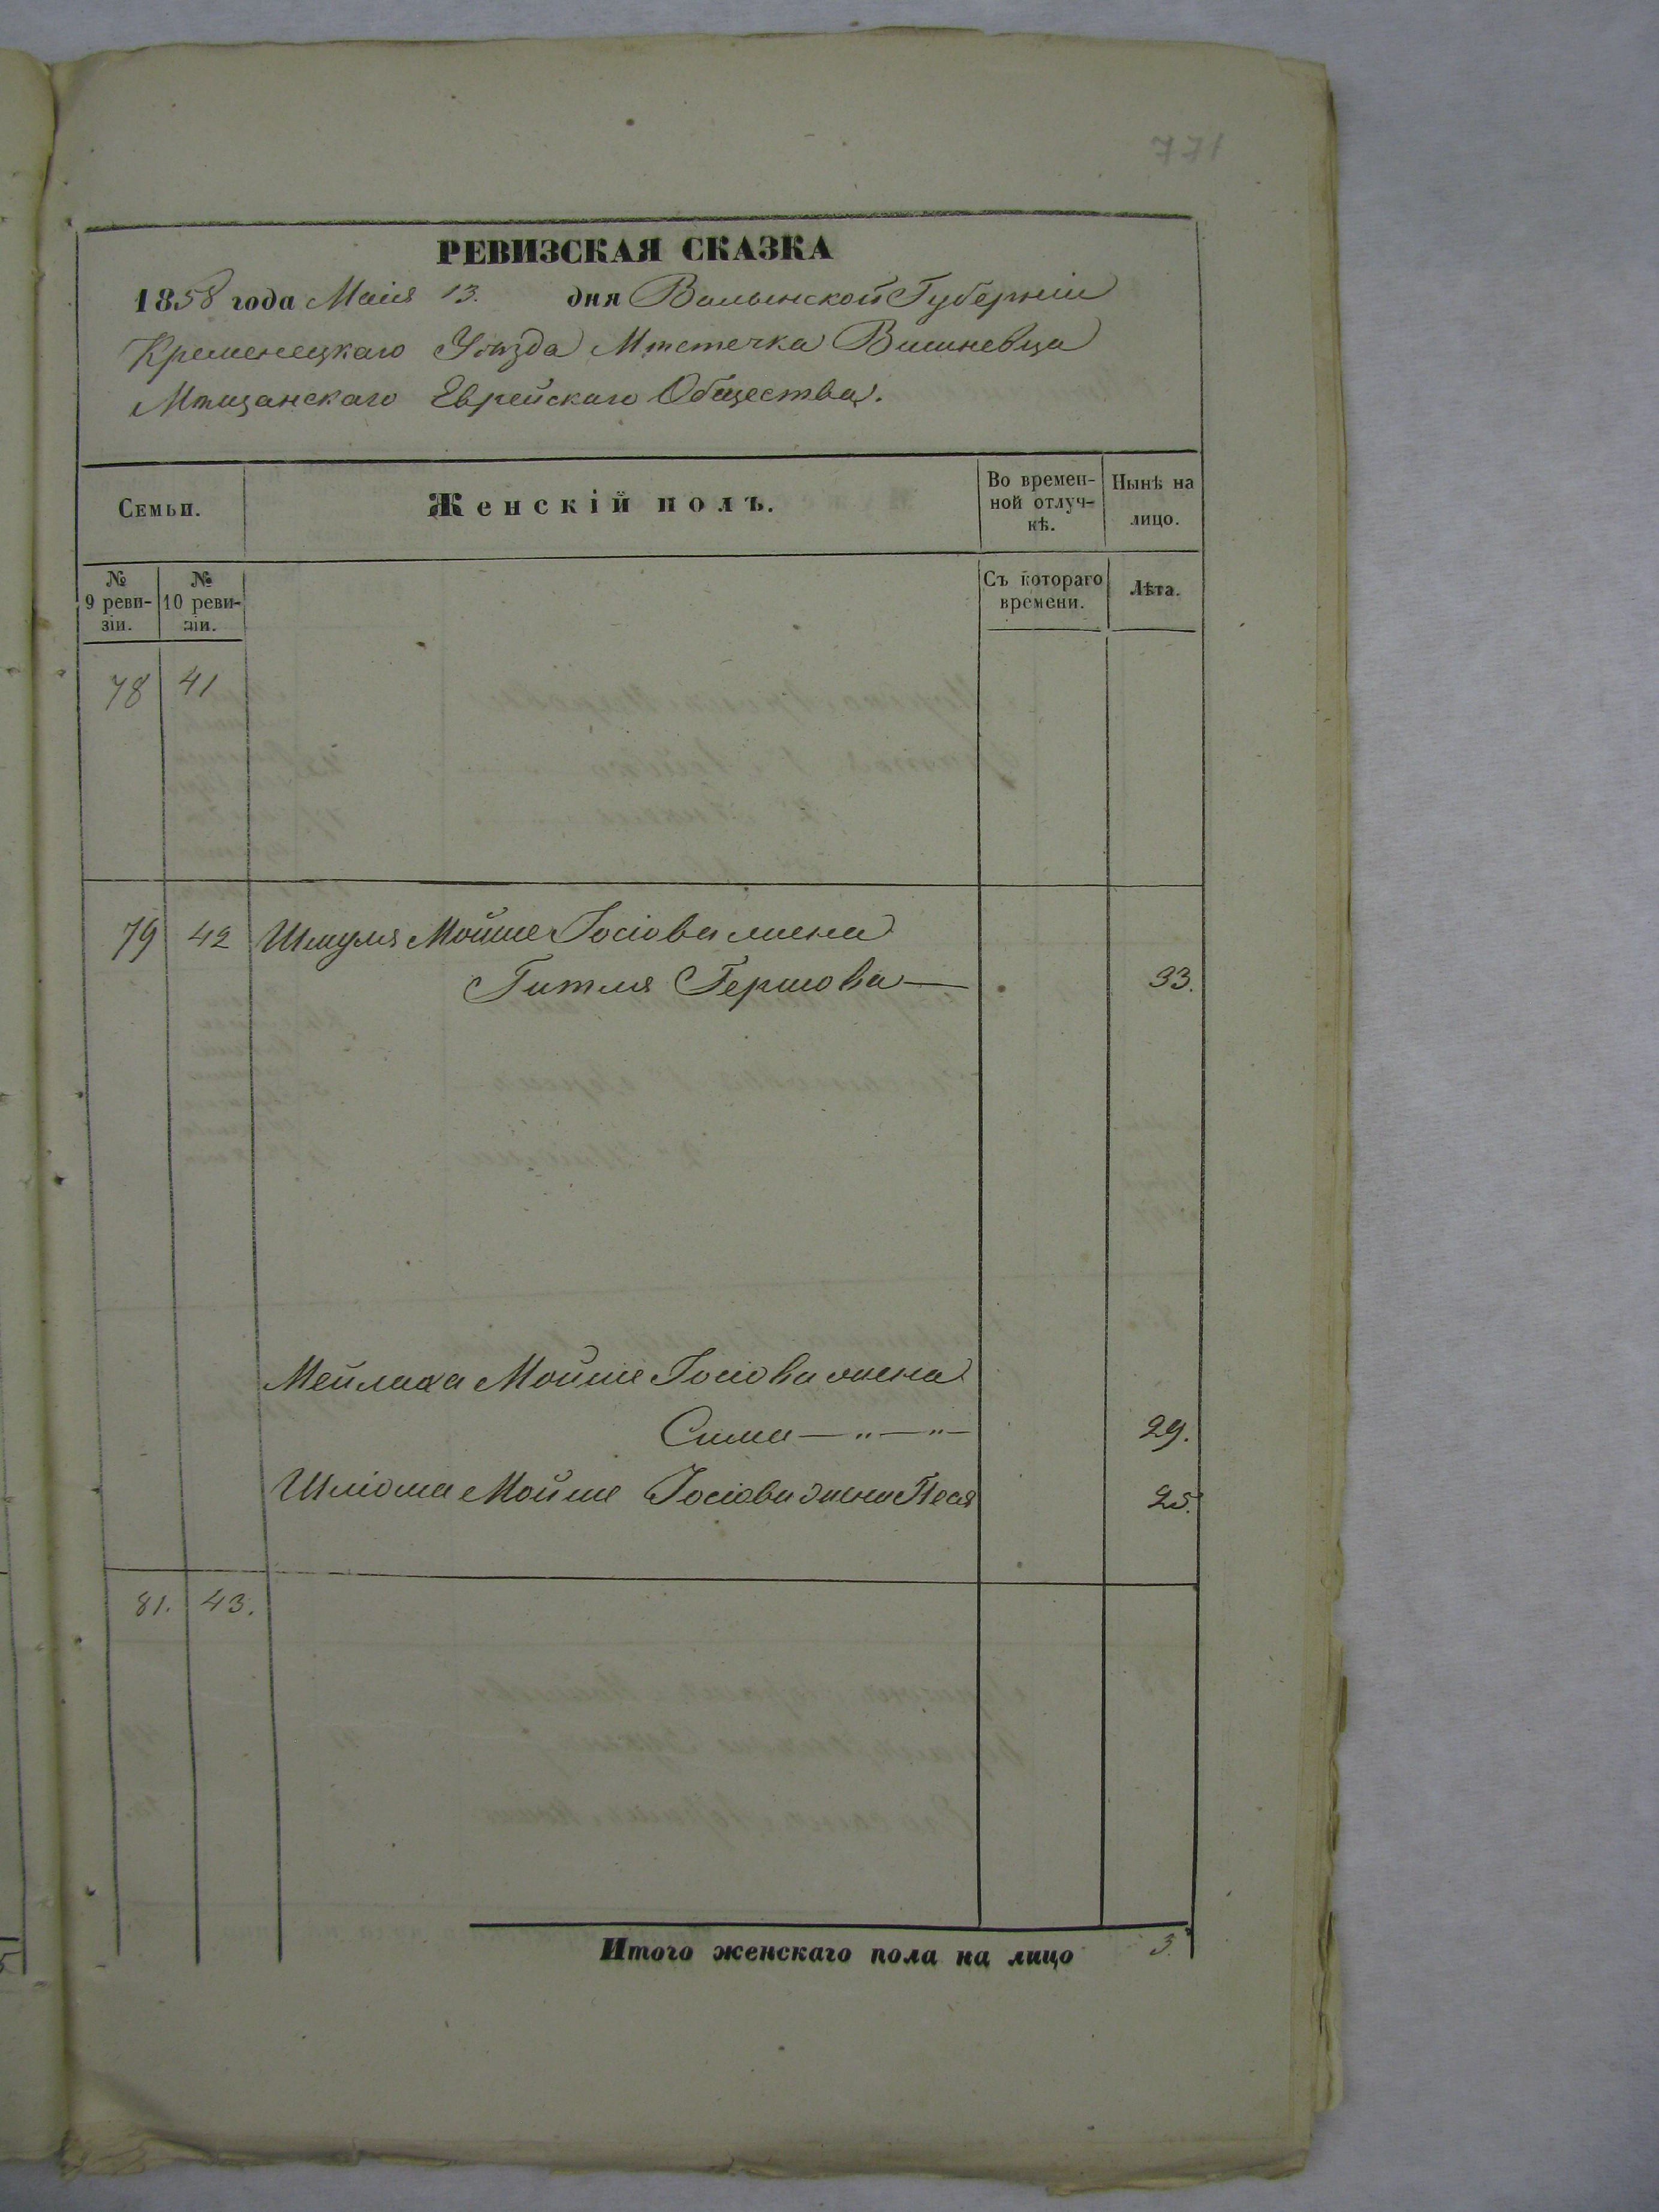 177
РЕВИЗСКАЯ СКАЗКА
1858 года Маія 13. дня Волынской Губерніи
Кременецкаго Уѣзда Мѣстечка Вишневца
Мѣщанскаго Еврейскаго Общества.
Семьи.
Женскій полъ.
Во времен-
ной отлуч-
кѣ.
Нынѣ на
лицо.
№
9 реви-
зіи.
№
10 реви-
зіи.
Съ котораго
времени.
Лѣта.
78 41
79 42 Шмуля Мойше Іосіова жена
Гитля Гершова — 33.
Мейлаха Мойше Іосіова жена
Сима — „ — „ — 29.
Шліома Мойше Іосіова жена Песя 25.
81. 43.
Итого женскаго пола на лицо 3.